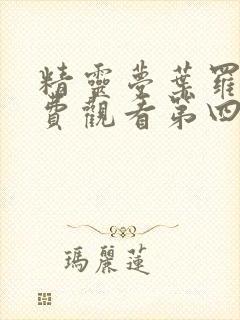 精靈夢葉羅
費觀看第四
瑪麗蓮